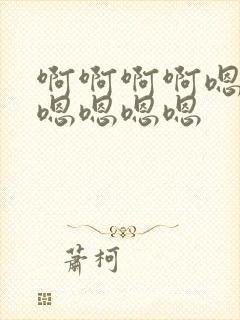 啊啊啊啊嗯
嗯嗯嗯嗯
蕭柯